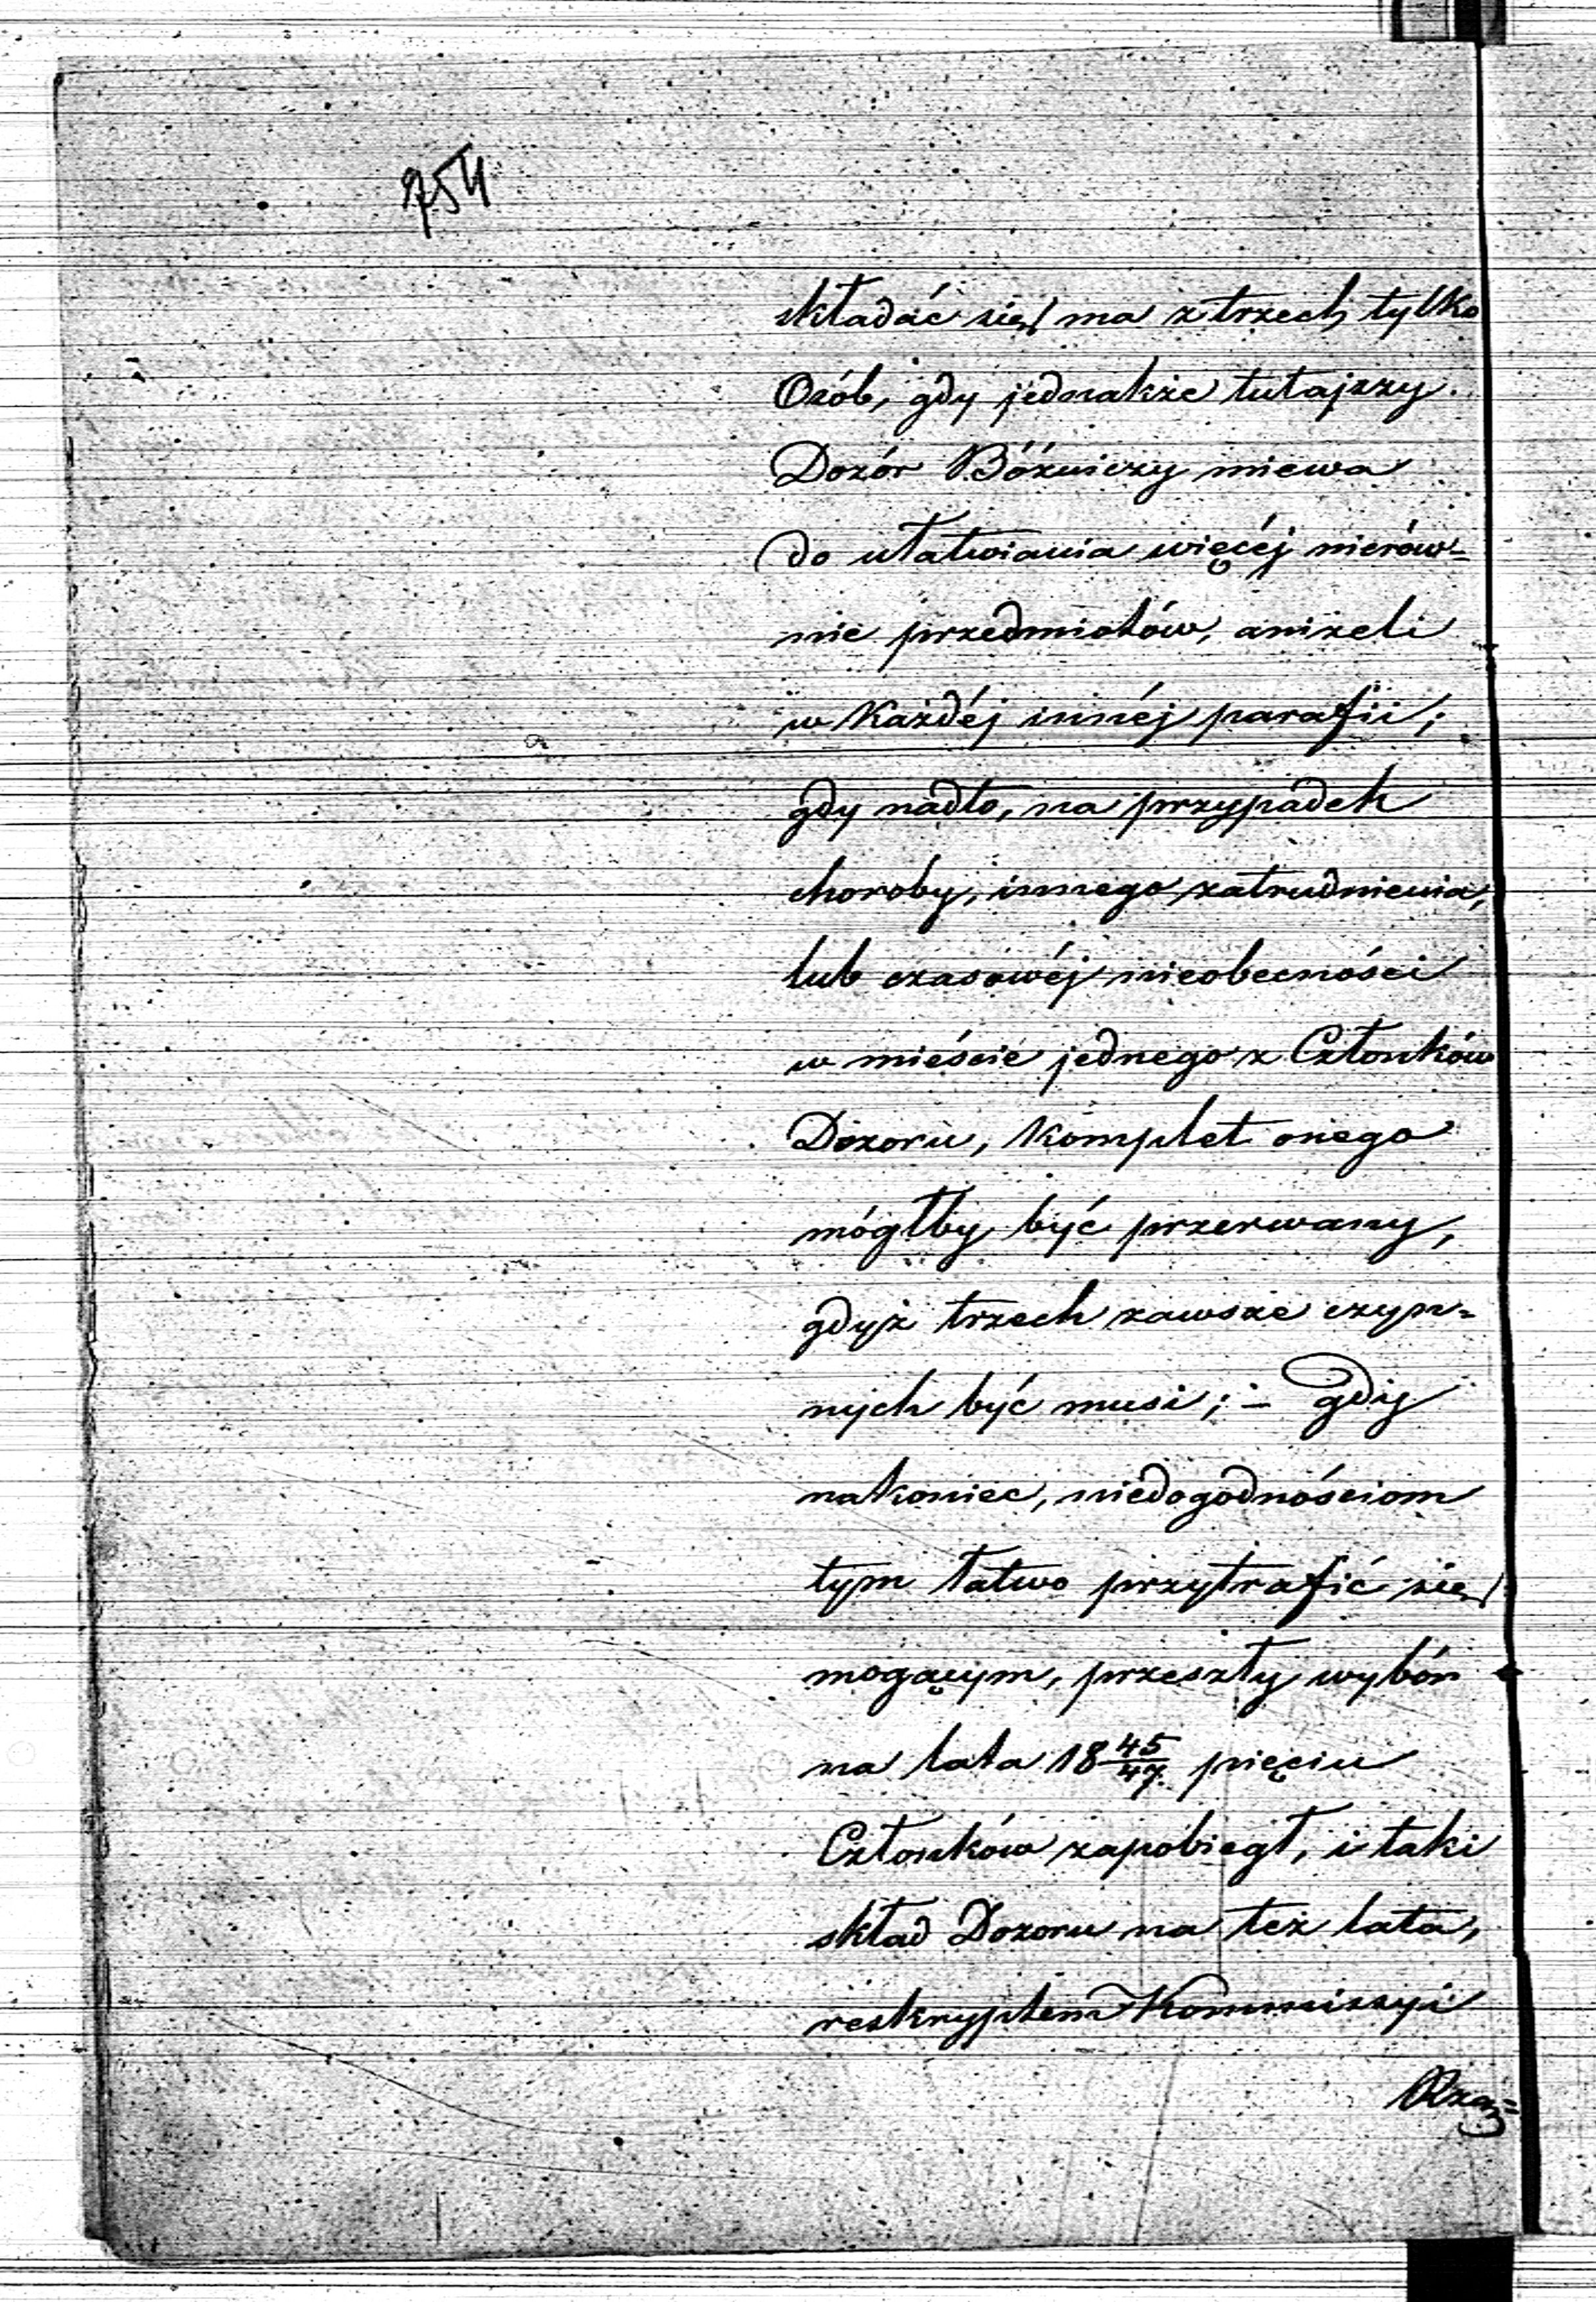 754
składać się ma z trzech tylko
Osób, gdy jednakże tutajszy
Dozór Bóźniczy miewa
do ułatwiania więcéj nierów-
nie przedmiotów, aniżeli
w każdéj innéj parafii;
gdy nadto, na przypadek
choroby, innego zatrudnienia,
lub czasowéj nieobecności
w mieście jednego z Członków
Dozoru, komplet onego
mógłby być przerwany,
gdyż trzech zawsze czyn=
nych być musi; – gdy
nakoniec, niedogodnościom
tym łatwo przytrafić się
mogącym, przeszły wybór
na lata 18 45/47. pięciu
Członków zapobiegł, i taki
skład Dozoru na też lata,
reskryptem Kommissyi
Rzą=